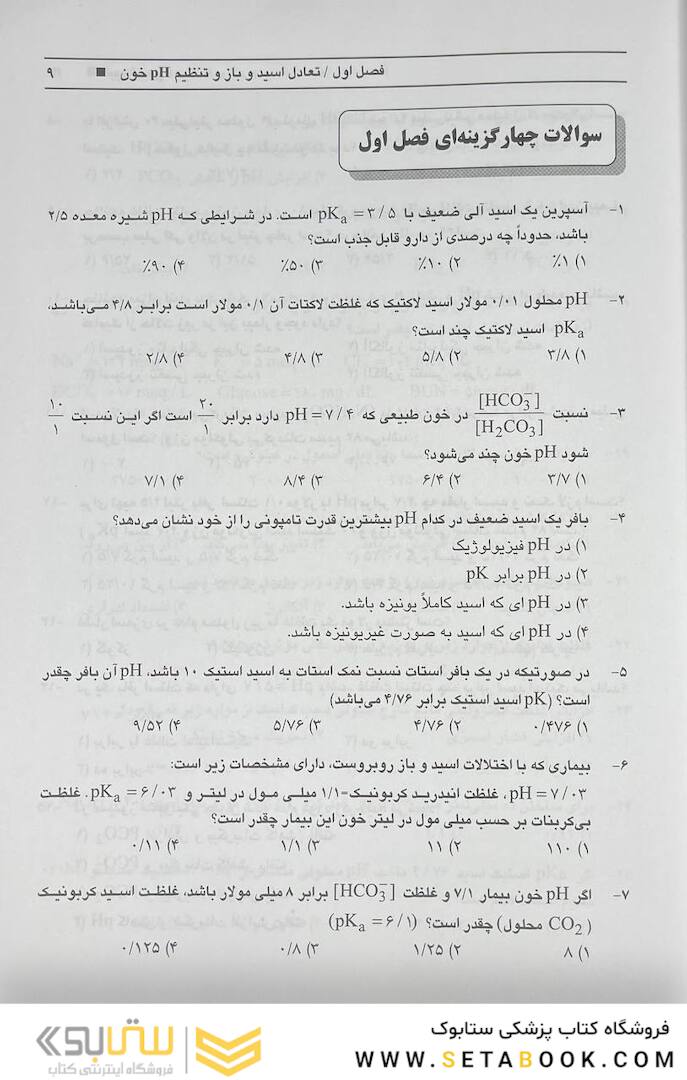 فصل اول / تعادل اسید و باز و تنظیم pH خون ■ ۹
سوالات چهارگزینه‌ای فصل اول
۱- آسپرین یک اسید آلی ضعیف با pKa = ۳/۵ است. در شرایطی که pH شیره معده ۲/۵
باشد، حدوداً چه درصدی از دارو قابل جذب است؟
۱) ۱٪ ۲) ۱۰٪ ۳) ۵۰٪ ۴) ۹۰٪
۲- pH محلول ۰/۰۱ مولار اسید لاکتیک که غلظت لاکتات آن ۰/۱ مولار است برابر ۴/۸ می‌باشد،
pKa اسید لاکتیک چند است؟
۱) ۳/۸ ۲) ۵/۸ ۳) ۴/۸ ۴) ۲/۸
۳- نسبت [HCO3-]/[H2CO3] در خون طبیعی که pH = ۷/۴ دارد برابر ۲۰/۱ است اگر این نسبت ۱۰/۱
شود pH خون چند می‌شود؟
۱) ۳/۷ ۲) ۶/۴ ۳) ۸/۴ ۴) ۷/۱
۴- بافر یک اسید ضعیف در کدام pH بیشترین قدرت تامپونی را از خود نشان می‌دهد؟
۱) در pH فیزیولوژیک
۲) در pH برابر pK
۳) در pH ای که اسید کاملاً یونیزه باشد.
۴) در pH ای که اسید به صورت غیریونیزه باشد.
۵- در صورتیکه در یک بافر استات نسبت نمک استات به اسید استیک ۱۰ باشد، pH آن بافر چقدر
است؟ (pK اسید استیک برابر ۴/۷۶ می‌باشد)
۱) ۰/۴۷۶ ۲) ۴/۷۶ ۳) ۵/۷۶ ۴) ۹/۵۲
۶- بیماری که با اختلالات اسید و باز روبروست، دارای مشخصات زیر است:
pH = ۷/۰۳، غلظت انیدرید کربونیک=۱/۱ میلی مول در لیتر و pKa = ۶/۰۳. غلظت
بی‌کربنات بر حسب میلی مول در لیتر خون این بیمار چقدر است؟
۱) ۱۱۰ ۲) ۱۱ ۳) ۱/۱ ۴) ۰/۱۱
۷- اگر pH خون بیمار ۷/۱ و غلظت [HCO3-] برابر ۸ میلی مولار باشد، غلظت اسید کربونیک
(CO2 محلول) چقدر است؟ (pKa = ۶/۱)
۱) ۸ ۲) ۱/۲۵ ۳) ۰/۸ ۴) ۰/۱۲۵
فروشگاه کتاب پزشکی ستابوک
WWW.SETABOOK.COM
ستابوک
فروشگاه اینترنتی کتاب